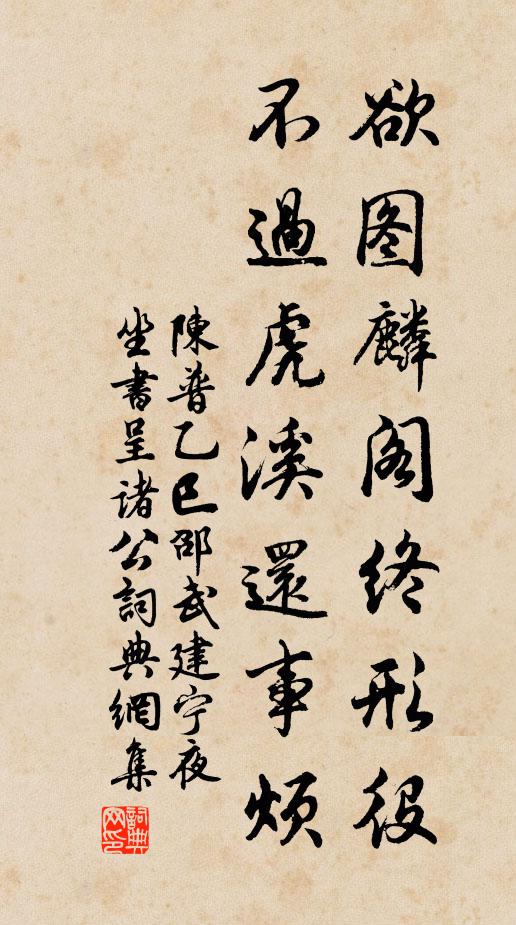 欲图麟阁终形役
不過虎溪還事煩
陳普乙巳邵武建宁夜
坐書呈诸公詞典網集
詞典网印